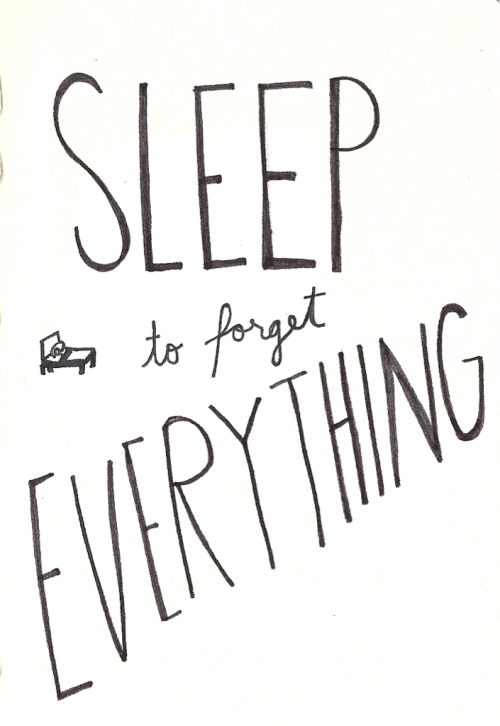 SLEEP
to forget
EVERYTHING